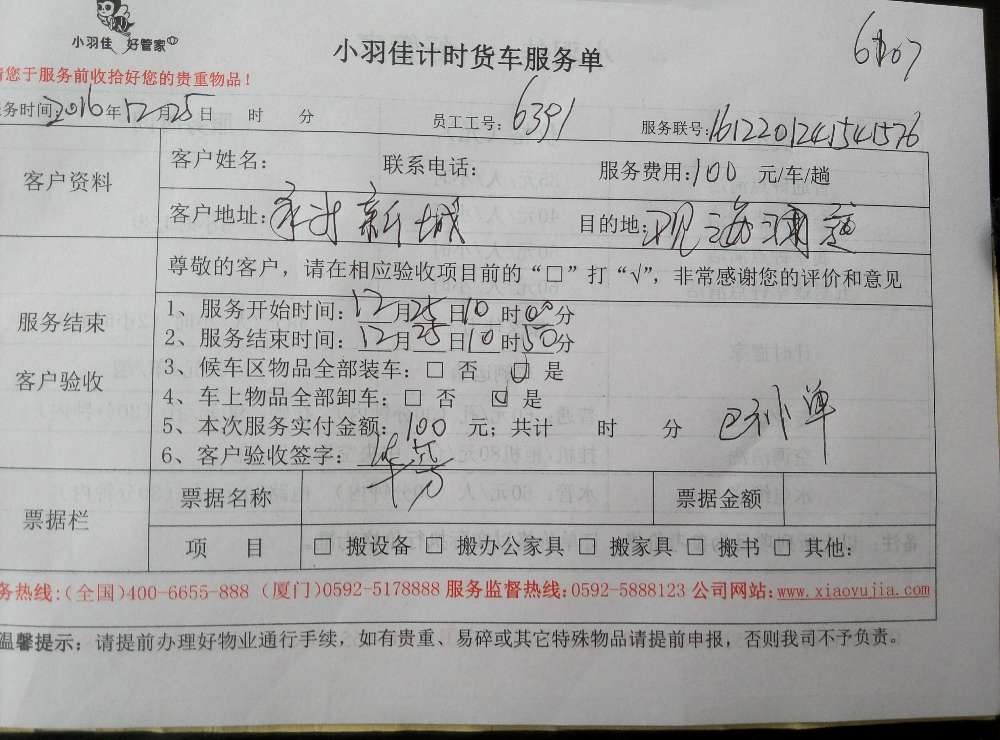 小羽佳 好管家
小羽佳计时货车服务单
6107
请您于服务前收拾好您的贵重物品！
务时间：2016年12月25日 时 分 员工工号：6391 服务联号：1612201241541576
客户资料
客户姓名： 联系电话： 服务费用：100 元/车/趟
客户地址： 新城 目的地：观海
尊敬的客户，请在相应验收项目前的“□”打“√”，非常感谢您的评价和意见
服务结束
客户验收
1、服务开始时间：12月25日10时00分
2、服务结束时间：12月25日10时50分
3、候车区物品全部装车：□ 否 □ 是
4、车上物品全部卸车：□ 否 □ 是
5、本次服务实付金额：100 元；共计 时 分
已补单
6、客户验收签字：
票据栏
票据名称 票据金额
项 目 □ 搬设备 □ 搬办公家具 □ 搬家具 □ 搬书 □ 其他：
务热线：(全国)400-6655-888 (厦门)0592-5178888 服务监督热线：0592-5888123 公司网站：www.xiaoyujia.com
温馨提示：请提前办理好物业通行手续，如有贵重、易碎或其它特殊物品请提前申报，否则我司不予负责。